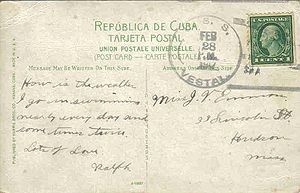 REPÚBLICA DE CUBA
TARJETA POSTAL
UNION POSTALE UNIVERSELLE.
(POST CARD — CARTE POSTALE)
MESSAGE MAY BE WRITTEN ON THIS SIDE.
ADDRESS ONLY ON THIS SIDE.
U. S. S.
FEB
28
VESTAL
1 CENT 1
How is the weather
I go in swimming
nearly every day and
some times twice.
Lots of Love
Ralph
Miss J. V. Emmons
Lincoln St
Hudson
Mass